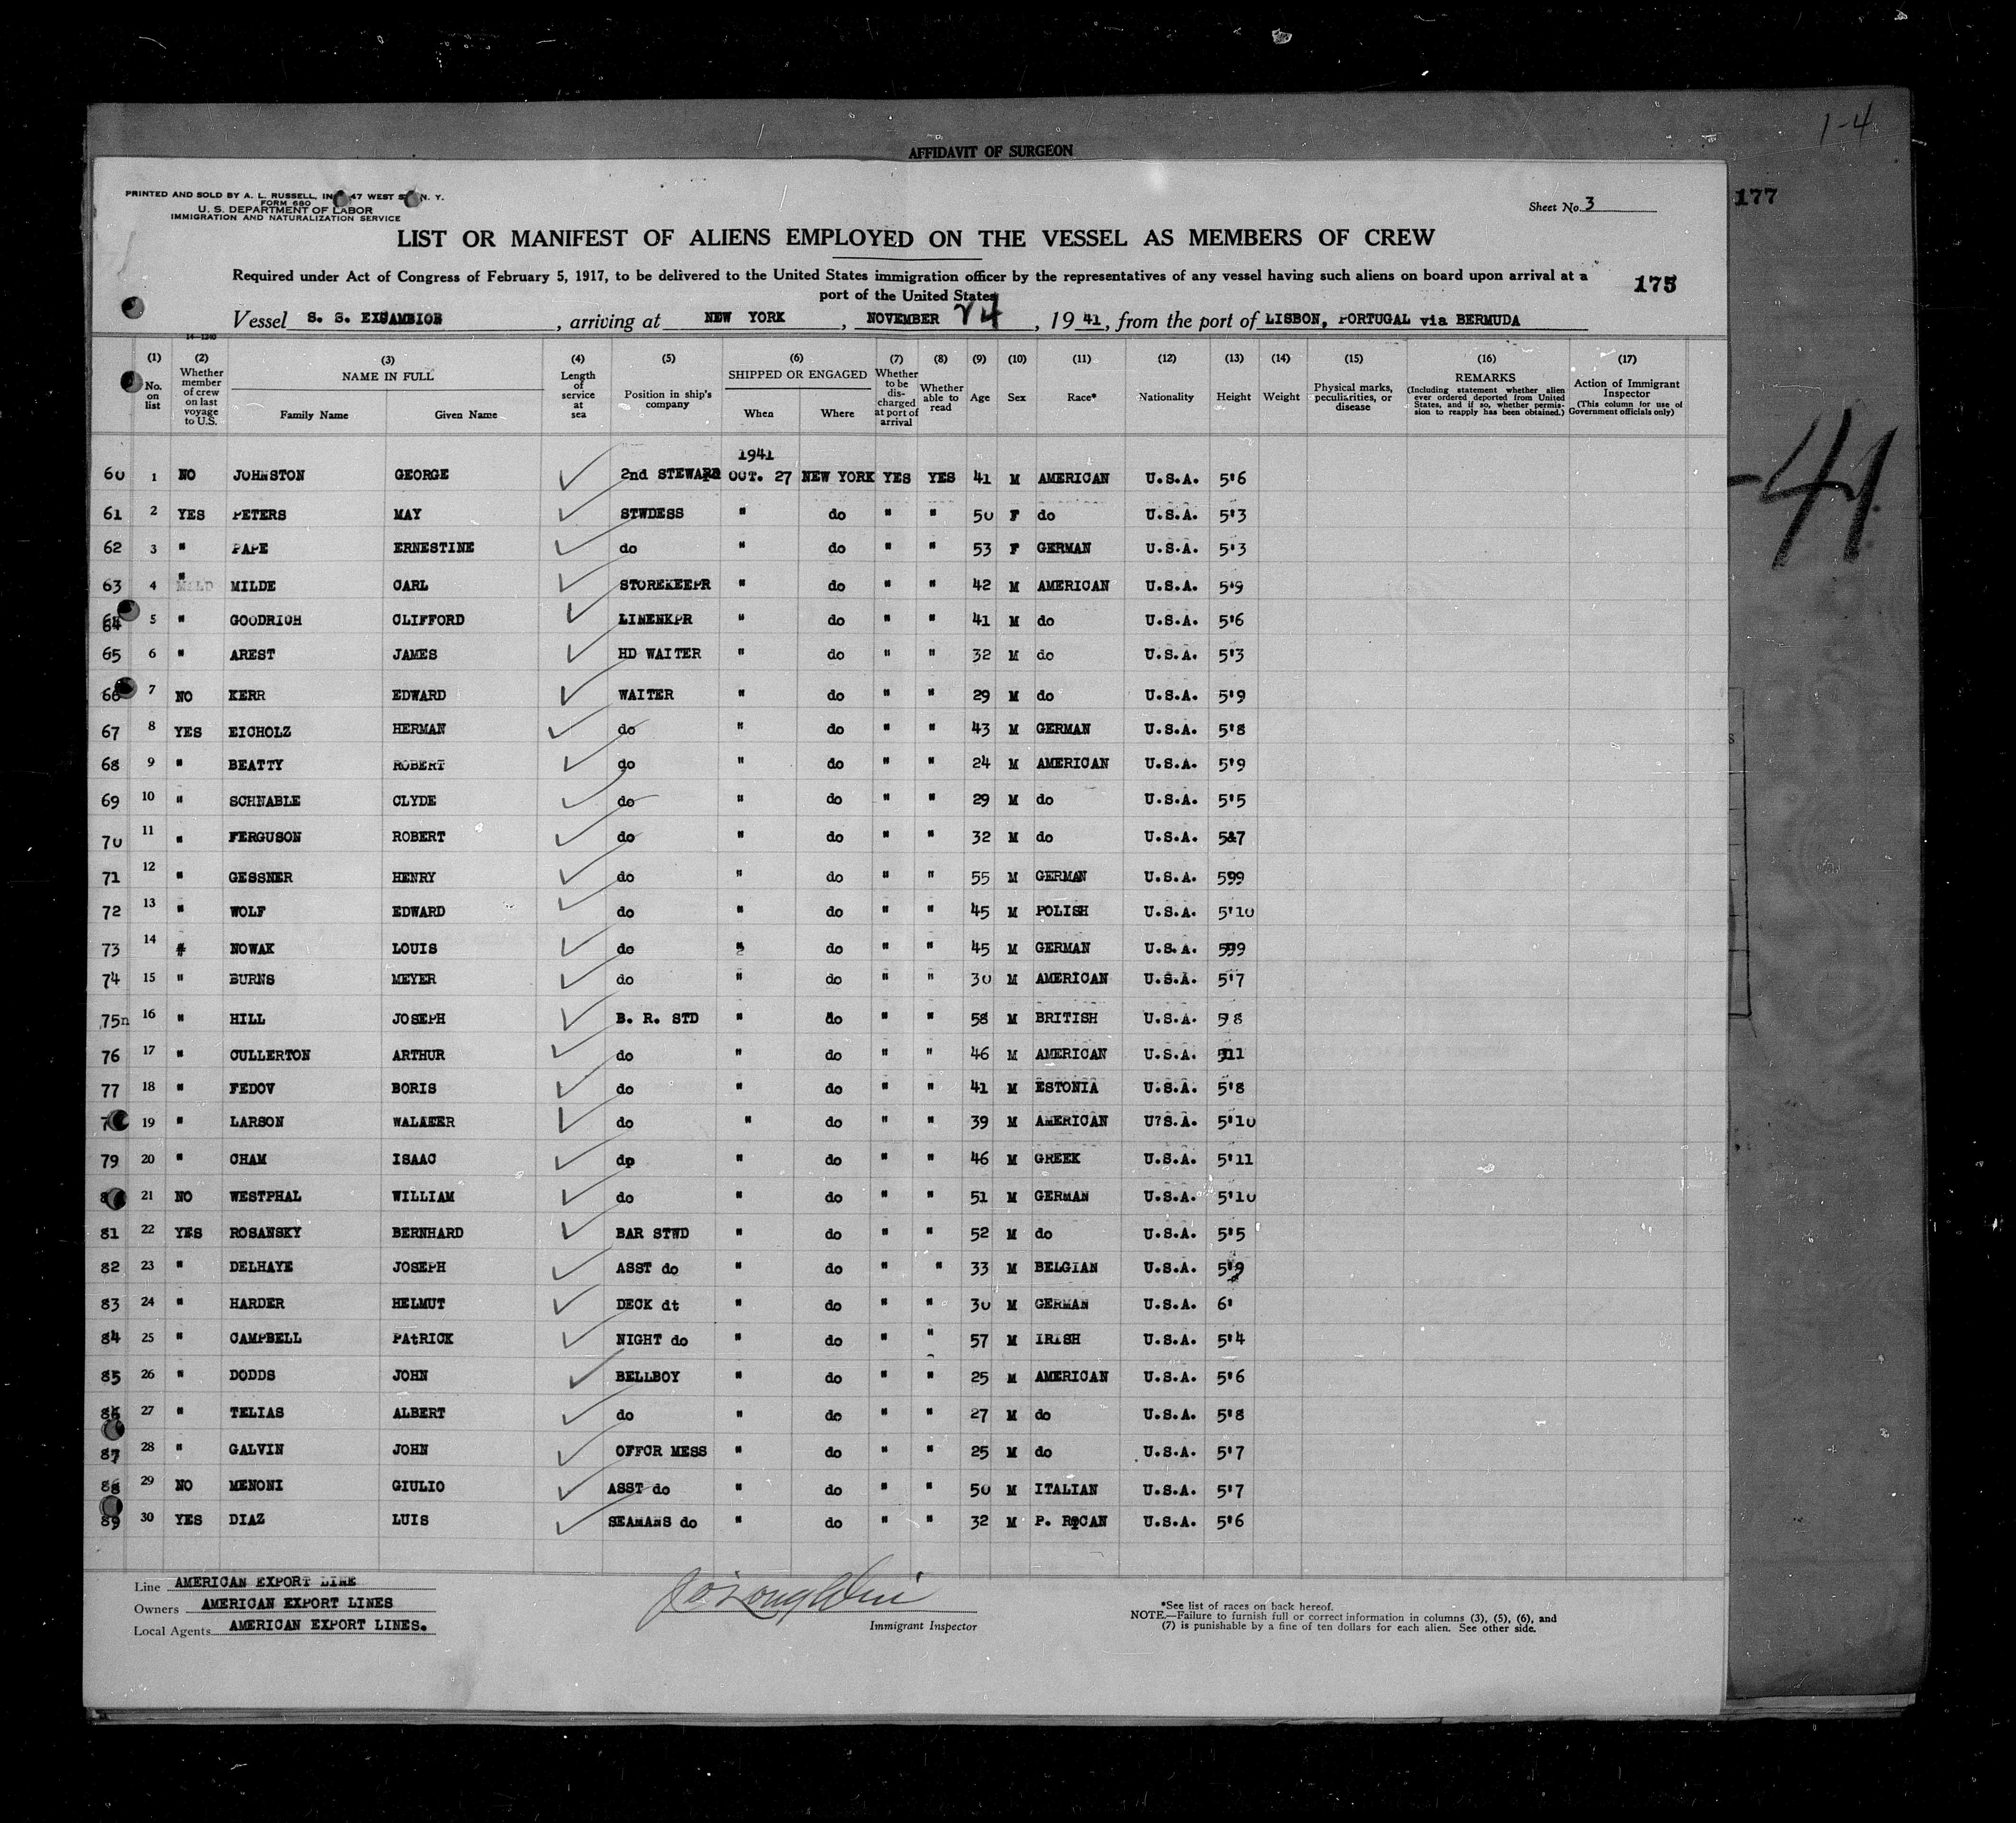 1-4
AFFIDAVIT OF SURGEON
177
PRINTED AND SOLD BY A. L. RUSSELL, IN 47 WEST N. Y.
FORM 680
U. S. DEPARTMENT OF LABOR
IMMIGRATION AND NATURALIZATION SERVICE
Sheet No. 3
LIST OR MANIFEST OF ALIENS EMPLOYED ON THE VESSEL AS MEMBERS OF CREW
Required under Act of Congress of February 5, 1917, to be delivered to the United States immigration officer by the representatives of any vessel having such aliens on board upon arrival at a
port of the United States
175
Vessel S. S. EXCAMBION, arriving at NEW YORK, NOVEMBER 24, 1941, from the port of LISBON, PORTUGAL via BERMUDA
14-1240
(1) No. on list
(2) Whether member of crew on last voyage to U.S.
(3) NAME IN FULL Family Name Given Name
(4) Length of service at sea
(5) Position in ship's company
(6) SHIPPED OR ENGAGED When Where
(7) Whether to be discharged at port of arrival
(8) Whether able to read
(9) Age
(10) Sex
(11) Race*
(12) Nationality
(13) Height
(14) Weight
(15) Physical marks, peculiarities, or disease
(16) REMARKS (Including statement whether alien ever ordered deported from United States, and if so, whether permission to reapply has been obtained.)
(17) Action of Immigrant Inspector (This column for use of Government officials only)
1941
60 1 NO JOHNSTON GEORGE 2nd STEWARD OCT. 27 NEW YORK YES YES 41 M AMERICAN U.S.A. 5'6
61 2 YES PETERS MAY STWDESS " do " " 50 F do U.S.A. 5'3
62 3 " PAPE ERNESTINE do " do " " 53 F GERMAN U.S.A. 5'3
63 4 " MILDE CARL STOREKEEPR " do " " 42 M AMERICAN U.S.A. 5'9
64 5 " GOODRICH CLIFFORD LINENKPR " do " " 41 M do U.S.A. 5'6
65 6 " AREST JAMES HD WAITER " do " " 32 M do U.S.A. 5'3
66 7 NO KERR EDWARD WAITER " do " " 29 M do U.S.A. 5'9
67 8 YES EICHOLZ HERMAN do " do " " 43 M GERMAN U.S.A. 5'8
68 9 " BEATTY ROBERT do " do " " 24 M AMERICAN U.S.A. 5'9
69 10 " SCHNABLE CLYDE do " do " " 29 M do U.S.A. 5'5
70 11 " FERGUSON ROBERT do " do " " 32 M do U.S.A. 5&7
71 12 " GESSNER HENRY do " do " " 55 M GERMAN U.S.A. 599
72 13 " WOLF EDWARD do " do " " 45 M POLISH U.S.A. 5'10
73 14 # NOWAK LOUIS do " do " " 45 M GERMAN U.S.A. 599
74 15 " BURNS MEYER do " do " " 30 M AMERICAN U.S.A. 5'7
75n 16 " HILL JOSEPH B. R. STD " do " " 58 M BRITISH U.S.A. 5 8
76 17 " CULLERTON ARTHUR do " do " " 46 M AMERICAN U.S.A. 511
77 18 " FEDOV BORIS do " do " " 41 M ESTONIA U.S.A. 5'8
7 19 " LARSON do " do " " 39 M AMERICAN U?S.A. 5'10
79 20 " CHAM ISAAC do " do " " 46 M GREEK U.S.A. 5'11
8 21 NO WESTPHAL WILLIAM do " do " " 51 M GERMAN U.S.A. 5'10
81 22 YES ROSANSKY BERNHARD BAR STWD " do " " 52 M do U.S.A. 5'5
82 23 " DELHAYE JOSEPH ASST do " do " " 33 M BELGIAN U.S.A. 5'9
83 24 " HARDER HELMUT DECK dt " do " " 30 M GERMAN U.S.A. 6'
84 25 " CAMPBELL PAtRICK NIGHT do " do " " 57 M IRISH U.S.A. 5'4
85 26 " DODDS JOHN BELLBOY " do " " 25 M AMERICAN U.S.A. 5'6
86 27 " TELIAS ALBERT do " do " " 27 M do U.S.A. 5'8
87 28 " GALVIN JOHN OFFCR MESS " do " " 25 M do U.S.A. 5'7
88 29 NO MENONI GIULIO ASST do " do " " 50 M ITALIAN U.S.A. 5'7
89 30 YES DIAZ LUIS SEAMANS do " do " " 32 M P. RICAN U.S.A. 5'6
-41
Line AMERICAN EXPORT LINE
Owners AMERICAN EXPORT LINES
Local Agents AMERICAN EXPORT LINES.
Immigrant Inspector
*See list of races on back hereof.
NOTE.—Failure to furnish full or correct information in columns (3), (5), (6), and
(7) is punishable by a fine of ten dollars for each alien. See other side.